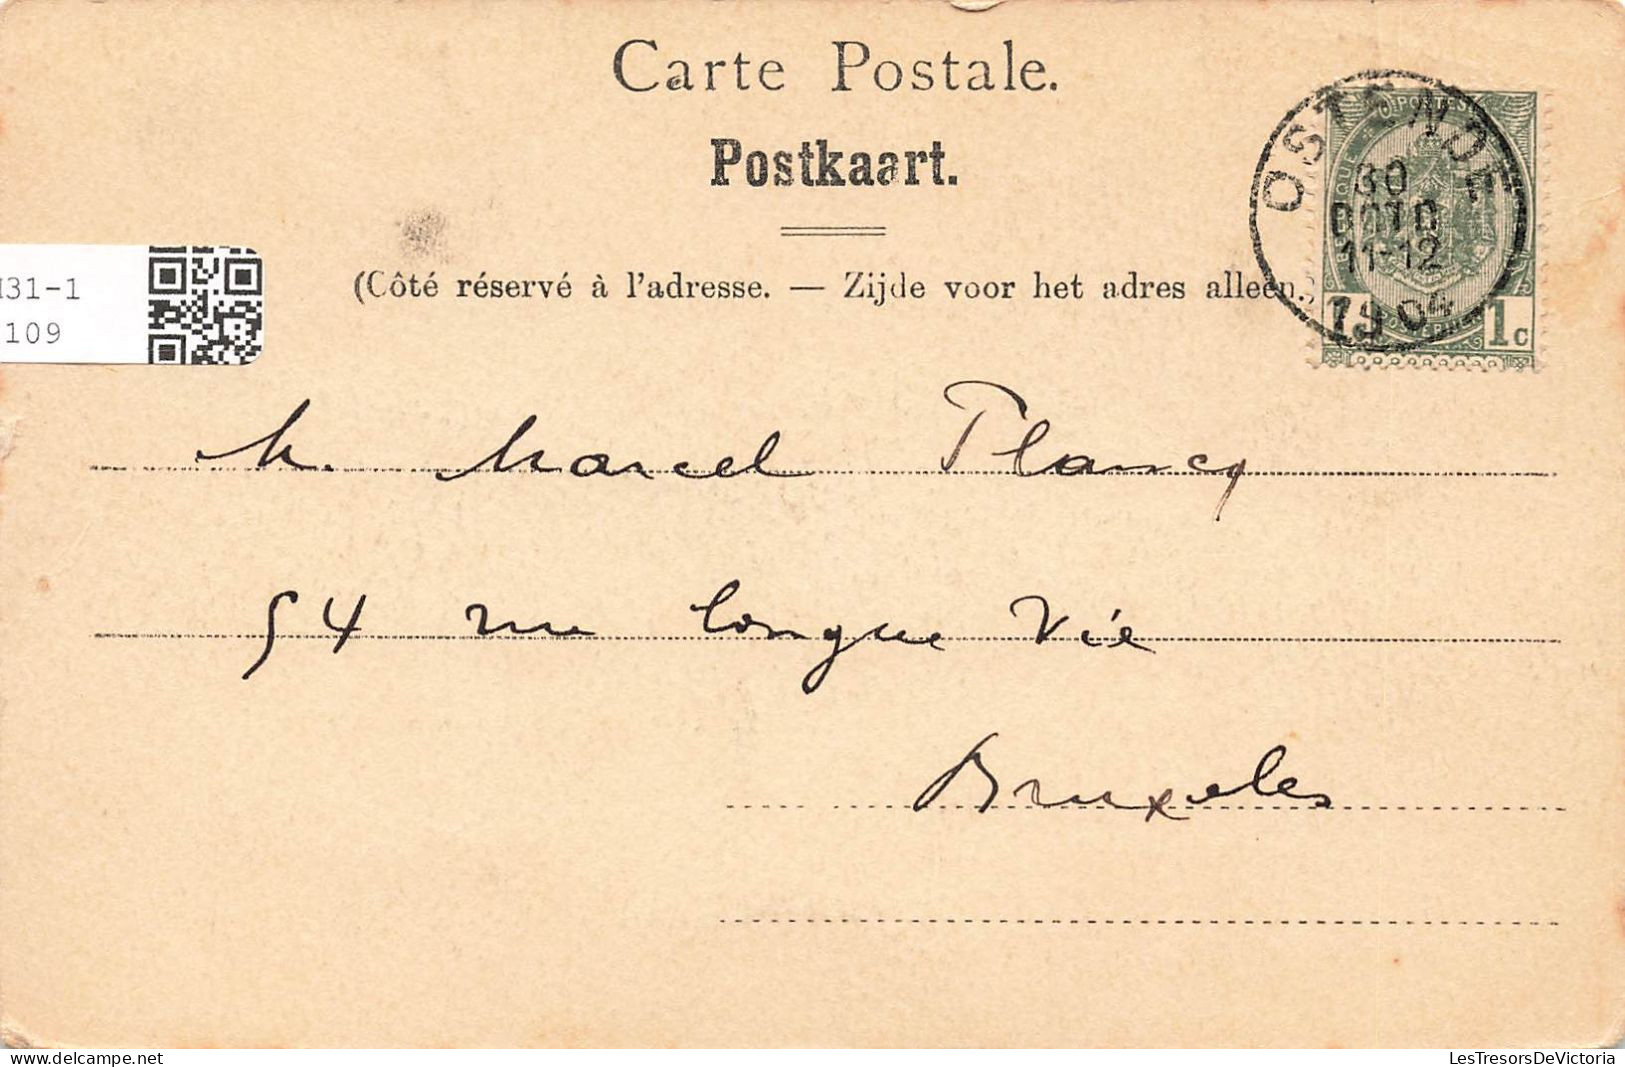 Carte Postale.
Postkaart.
(Côté réservé à l'adresse. — Zijde voor het adres alleen.)
OSTENDE
30
OCTO
11-12
1904
POSTES
1c 1c
31-1
109
M. Marcel Plancq
54 rue Longue Vie
Bruxelles
delcampe.net
LesTresorsDeVictoria